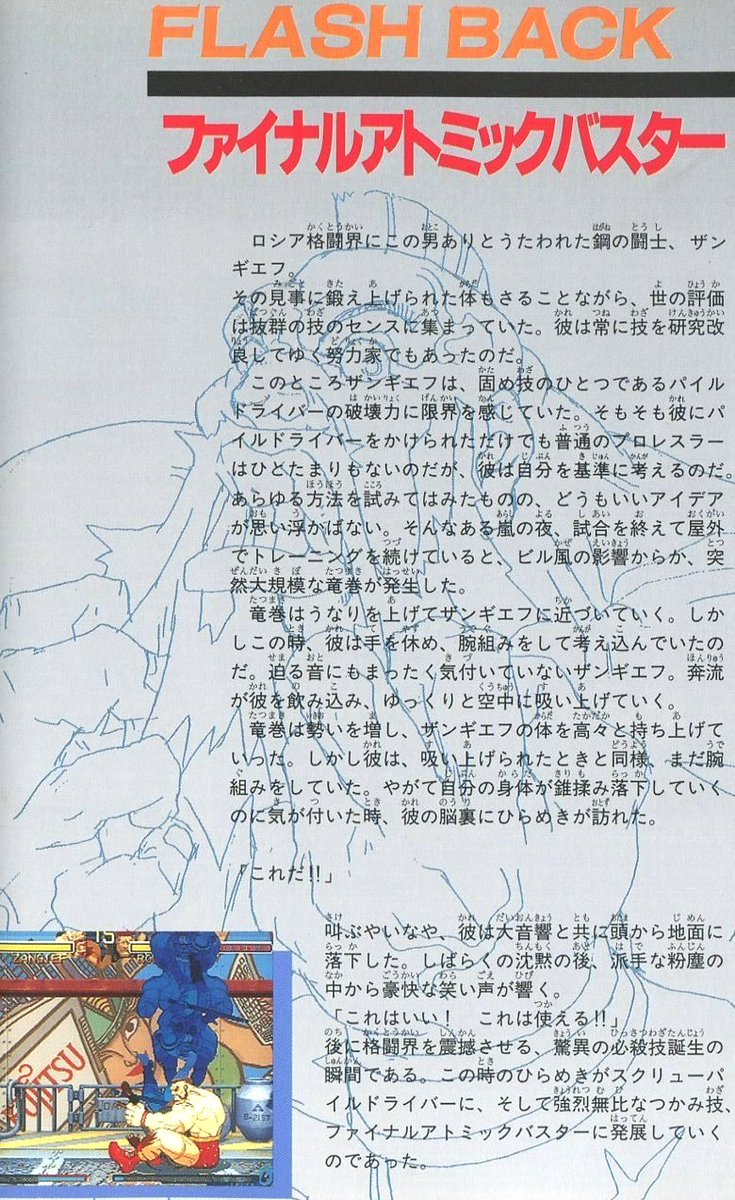 FLASH BACK
ファイナルアトミックバスター
ロシア格闘界にこの男ありとうたわれた鋼の闘士、ザン
ギエフ。
その見事に鍛え上げられた体もさることながら、世の評価
は抜群の技のセンスに集まっていた。彼は常に技を研究改
良してゆく努力家でもあったのだ。
このところザンギエフは、固め技のひとつであるパイル
ドライバーの破壊力に限界を感じていた。そもそも彼にパ
イルドライバーをかけられただけでも普通のプロレスラー
はひとたまりもないのだが、彼は自分を基準に考えるのだ。
あらゆる方法を試みてはみたものの、どうもいいアイデア
が思い浮かばない。そんなある嵐の夜、試合を終えて屋外
でトレーニングを続けていると、ビル風の影響からか、突
然大規模な竜巻が発生した。
竜巻はうなりを上げてザンギエフに近づいていく。しか
しこの時、彼は手を休め、腕組みをして考え込んでいたの
だ。迫る音にもまったく気付いていないザンギエフ。奔流
が彼を飲み込み、ゆっくりと空中に吸い上げていく。
竜巻は勢いを増し、ザンギエフの体を高々と持ち上げて
いった。しかし彼は、吸い上げられたときと同様、まだ腕
組みをしていた。やがて自分の身体が錐揉み落下していく
のに気が付いた時、彼の脳裏にひらめきが訪れた。
「これだ!!」
叫ぶやいなや、彼は大音響と共に頭から地面に
落下した。しばらくの沈黙の後、派手な粉塵の
中から豪快な笑い声が響く。
「これはいい！　これは使える!!」
後に格闘界を震撼させる、驚異の必殺技誕生の
瞬間である。この時のひらめきがスクリューパ
イルドライバーに、そして強烈無比なつかみ技、
ファイナルアトミックバスターに発展していく
のであった。
ZANGIEF
15
UJITSU